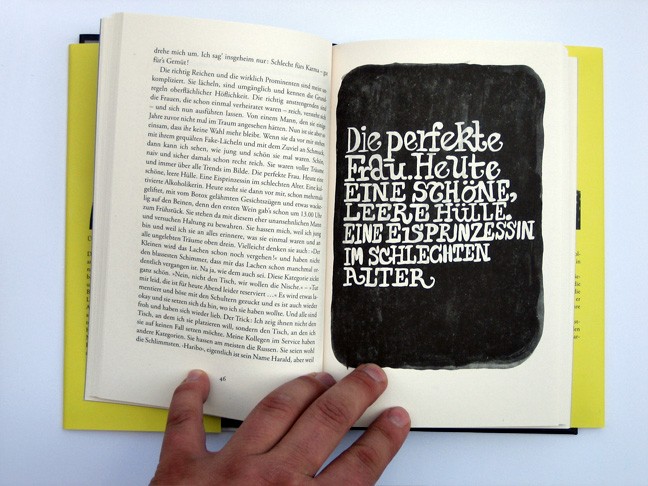 drehe mich um. Ich sag' insgeheim nur: Schlecht fürs Karma – gut
für's Gemüt!
Die richtig Reichen und die wirklich Prominenten sind meist un-
kompliziert. Sie lächeln, sind umgänglich und kennen die Grund-
regeln oberflächlicher Höflichkeit. Die richtig anstrengenden sind
die Frauen, die schon einmal verheiratet waren – reich, versteht sich
– und sich nun ausführen lassen. Von einem Mann, den sie einige
Jahre zuvor nicht mal im Traum angesehen hätten. Nun ist sie aber so
einsam, dass ihr keine Wahl mehr bleibt. Wenn sie da vor mir stehen,
mit ihrem gequälten Fake-Lächeln und mit dem Zuviel an Schmuck,
dann kann ich sehen, wie jung und schön sie mal waren. Schön,
naiv und sicher damals schon recht reich. Sie waren voller Träume
und immer über alle Trends im Bilde. Die perfekte Frau. Heute eine
schöne, leere Hülle. Eine Eisprinzessin im schlechten Alter. Eine kul-
tivierte Alkoholikerin. Heute steht sie dann vor mir, schon mehrmals
geliftet, mit vom Botox gelähmten Gesichtszügen und etwas wacke-
lig auf den Beinen, denn den ersten Wein gab's schon um 13.00 Uhr
zum Frühstück. Sie stehen da mit diesem eher unansehnlichen Mann
und versuchen Haltung zu bewahren. Sie hassen mich, weil ich jung
bin und weil ich sie an alles erinnere, was sie einmal waren und an
alle ungelebten Träume oben drein. Vielleicht denken sie auch: »Der
Kleinen wird das Lachen schon noch vergehen!« und haben nicht
den blassesten Schimmer, dass mir das Lachen schon manchmal or-
dentlich vergangen ist. Na ja, wie dem auch sei. Diese Kategorie zickt
ganz schön. »Nein, nicht den Tisch, wir wollen die Nische.« – »Tut
mir leid, die ist für heute Abend leider reserviert …« Es wird etwas la-
mentiert und böse mit den Schultern gezuckt und es ist auch wieder
okay und sie setzen sich da hin, wo ich sie haben wollte. Und alle sind
froh und haben sich wieder lieb. Der Trick: Ich zeig ihnen nicht den
Tisch, an dem ich sie platzieren will, sondern den Tisch, an den ich
sie auf keinen Fall setzen möchte. Meine Kollegen im Service haben
andere Kategorien. Sie hassen am meisten die Russen. Sie seien wohl
die Schlimmsten. ›Haribo‹, eigentlich ist sein Name Harald, aber weil
46
Die perfekte
Frau. Heute
EINE SCHÖNE,
LEERE HÜLLE.
EINE EISPRINZESSIN
IM SCHLECHTEN
ALTER